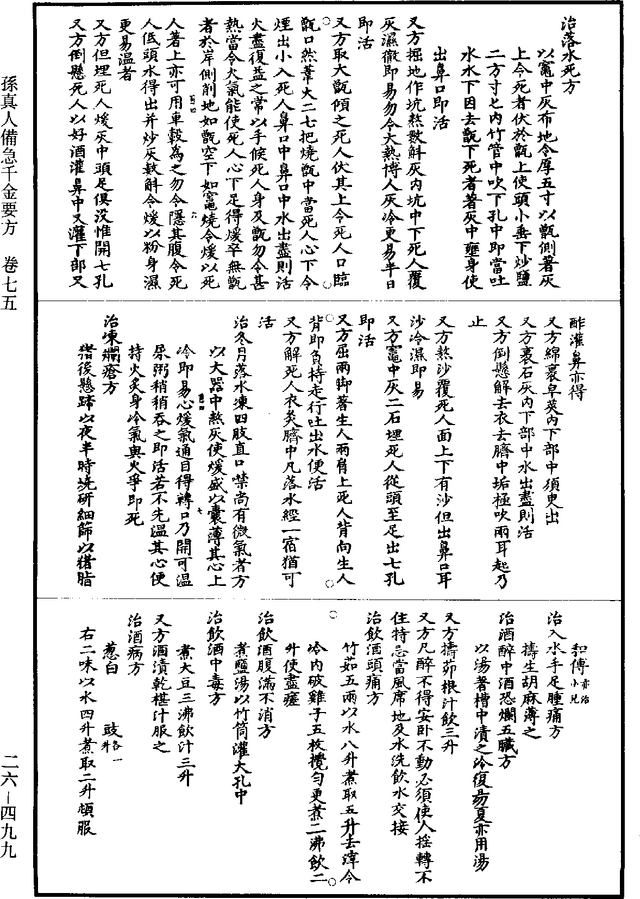 孫真人備急千金要方　卷七五
二六－四九九
治落水死方
以竈中灰布地令厚五寸以甑側著灰
上令死者伏於甑上使頭小垂下炒鹽
二方寸匕内竹管中吹下孔中即當吐
水水下因去甑下死者著灰中壅身使
出鼻口即活
又方掘地作坑熬數斛灰内坑中下死人覆
灰濕徹即易勿令大熱愽人灰冷更易半日
即活
又方取大甑傾之死人伏其上令死人口臨
甑口然葦火二七把燒甑中當死人心下令
煙出小入死人鼻口中鼻口中水出盡則活
火盡復益之常以手候死人身及甑勿令甚
熱當令火氣能使死人心下足得煖卒無甑
者於岸側削地如甑空下如竈燒令煖以死
人著上亦可用車轂為之勿令隱其腹令死
人低頭水得出并炒灰數斛令煖以粉身濕
更易温者
又方但埋死人煖灰中頭足俱没惟開七孔
又方倒懸死人以好酒灌鼻中又灌下部又
酢灌鼻亦得
又方綿裹皁莢内下部中須臾出
又方裹石灰内下部中水出盡則活
又方倒懸解去衣去臍中垢極吹兩耳起乃
止
又方熬沙覆死人面上下有沙但出鼻口耳
沙冷濕即易
又方竈中灰二石埋死人從頭至足出七孔
即活
又方屈兩脚著生人兩肩上死人背向生人
背即負持走行吐出水便活
又方解死人衣灸臍中凡落水經一宿猶可
活
治冬月落水凍四肢直口噤尚有微氣者方
以大器中熬灰使煖盛以囊薄其心上
冷即易心煖氣通目得轉口乃開可温
尿粥稍稍吞之即活若不先温其心便
持火炙身冷氣與火爭即死
治凍爛瘡方
猪後懸蹄以夜半時燒研細篩以猪脂
和傅亦治小兒
治入水手足腫痛方
擣生胡麻薄之
治酒醉中酒恐爛五臓方
以湯著槽中漬之冷復易夏亦用湯
又方擣茆根汁飲三升
又方凡醉不得安卧不動必須使人揺轉不
住特忌當風席地及水洗飲水交接
治飲酒頭痛方
竹茹五兩以水八升煮取五升去滓令
冷内破雞子五枚攪勻更煮二沸飲二
升使盡瘥
治飲酒腹滿不消方
煮鹽湯以竹筒灌大孔中
治飲酒中毒方
煮大豆三沸飲汁三升
又方酒漬乾椹汁服之
治酒病方
葱白　豉各一升
右二味以水四升煮取二升頓服